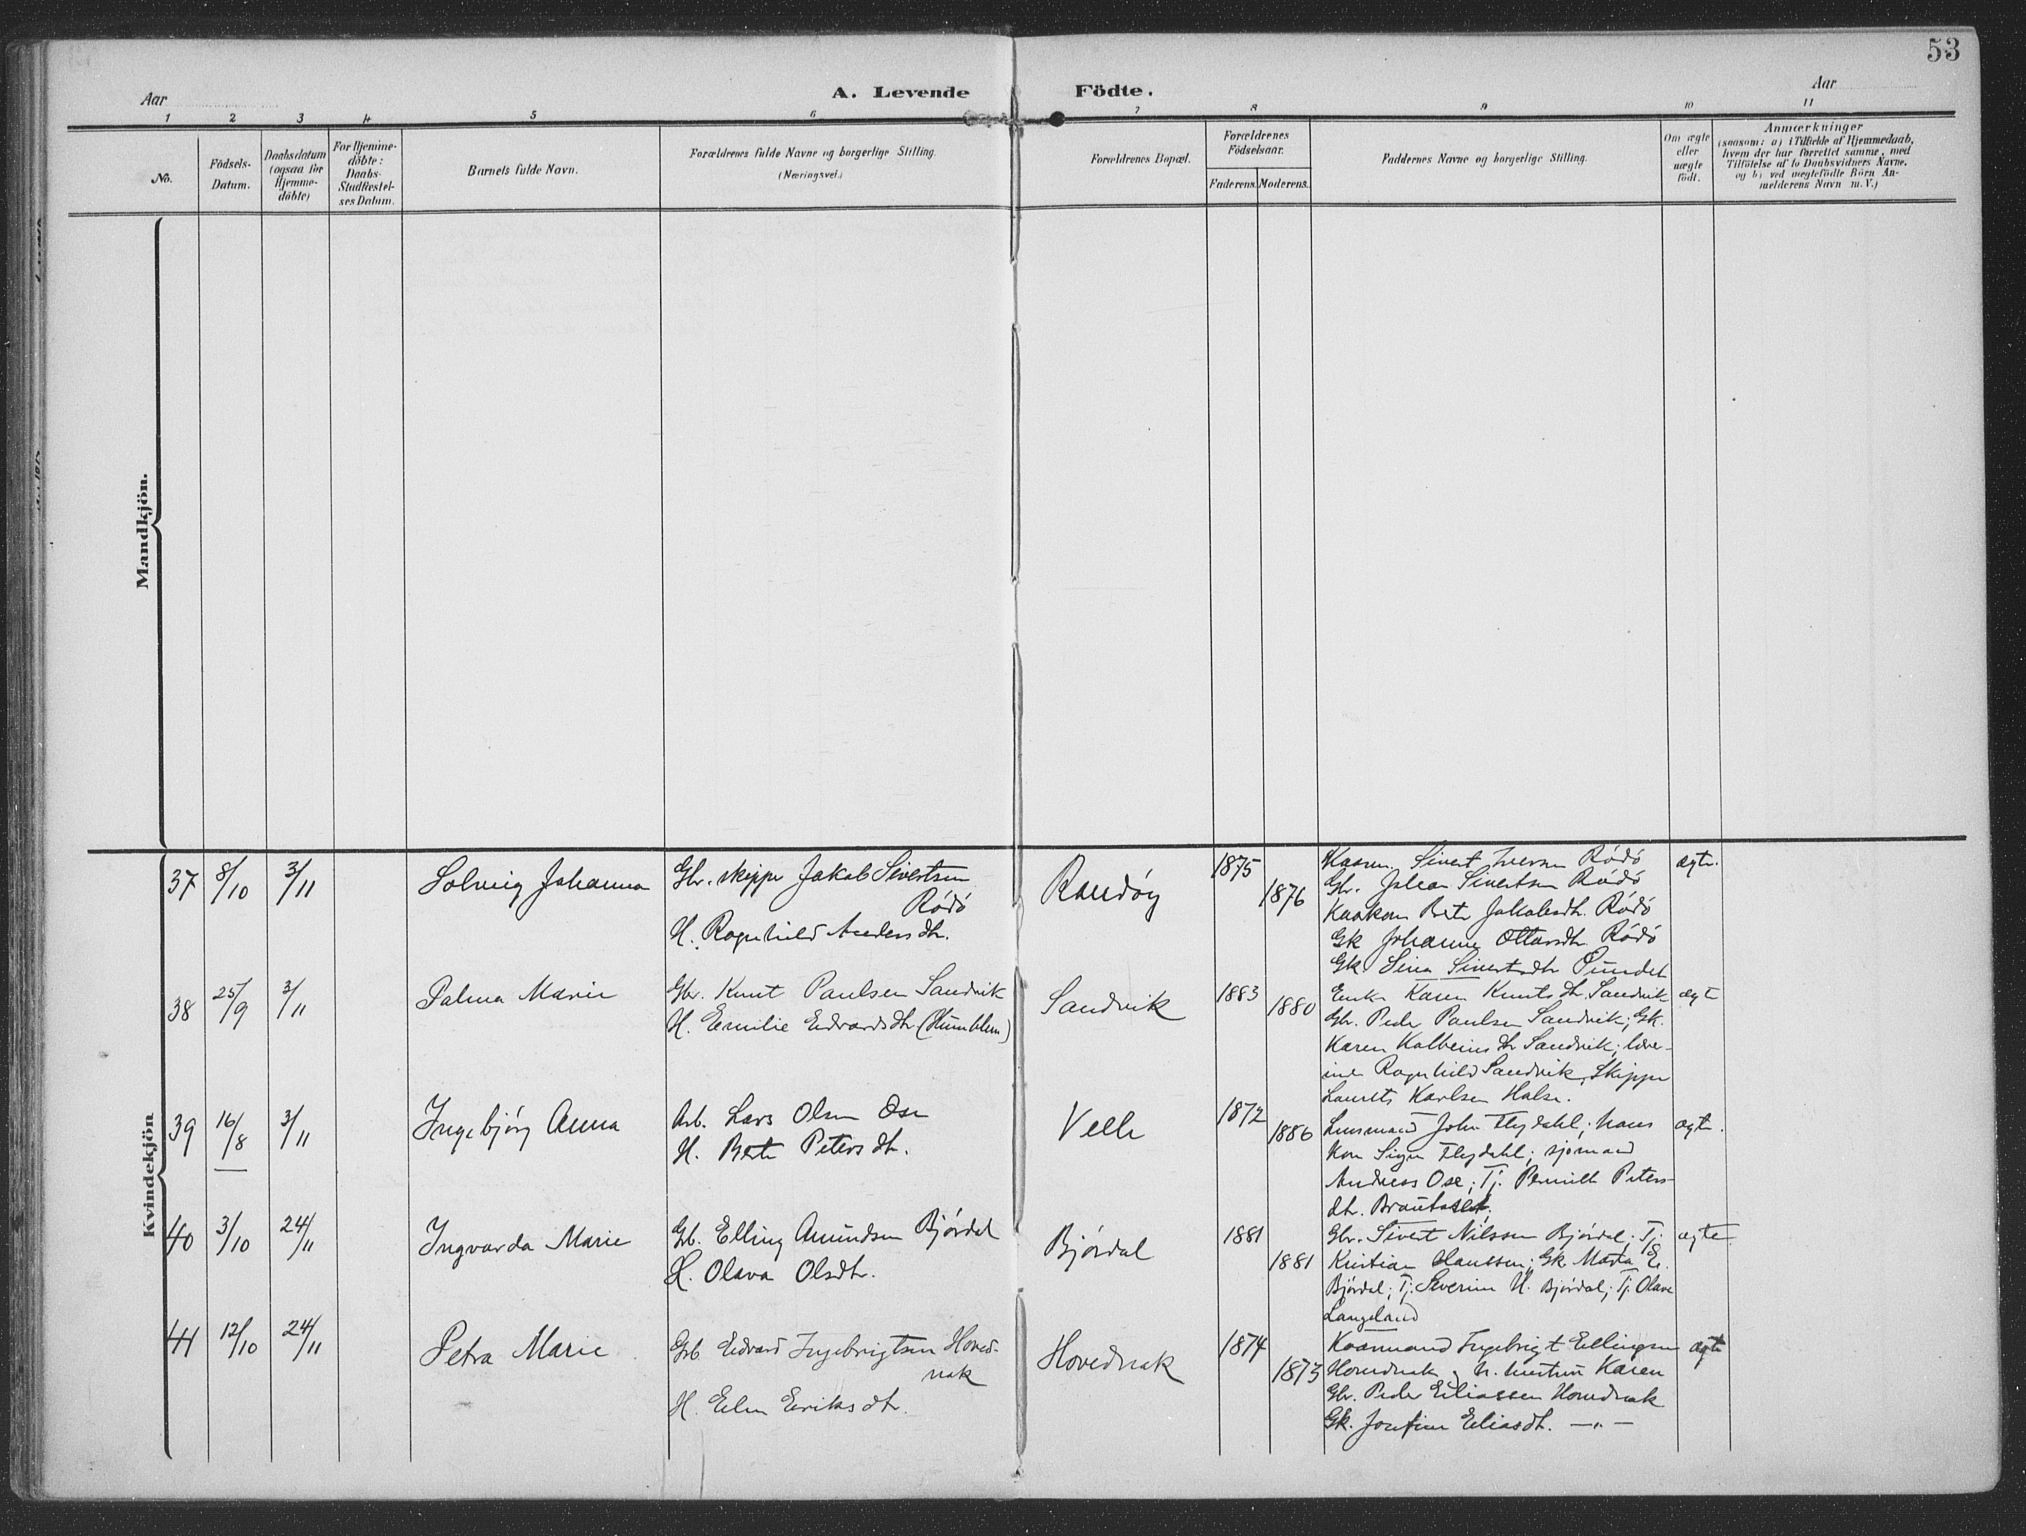 53
Aar
A. Levende Födte.
Aar
1 2 3 4 5 6 7 8 9 10 11
No.
Födsels-
Datum.
Daabsdatum
(ogsaa for
Hjemme-
döbte)
For Hjemme-
döbte:
Daabs-
Stadfæstel-
ses Datum.
Barnets fulde Navn.
Forældrenes fulde Navne og borgerlige Stilling.
(Næringsvei.)
Forældrenes Bopæl.
Forældrenes
Födselsaar.
Faderens. Moderens.
Faddernes Navne og borgerlige Stilling.
Om ægte
eller
uægte
födt.
Anmærkninger
(saasom: a) i Tilfælde af Hjemmedaab,
hvem der har forrettet samme, med
Tilföielse af to Daabsvidners Navne.
og b) ved uægtefödte Börn An-
melderens Navn m. V.)
Mandkjön.
Kvindekjön
37 8/10 3/11 Solveig Johanna
Gbr. skipper Jakob Sivertsen
Rödö
H. Ragnhild Andersdtr.
Randöy
1875
1876
Sivert Iversen Rödö
Gbr. Johan Sivertsen Rödö
Jakobsdtr. Rödö
Gk Johanne Ottarsdtr Rödö
Gk Lina Sivertsdtr Sundet
ægte.
38 25/9 3/11 Palma Marie
Gbr. Knut Paulsen Sandvik
H. Emilie Edvardsdtr (Humblem)
Sandvik
1883
1880
Enke Karen Knutsdtr. Sandvik
Gbr. Peder Paulsen Sandvik; Gk.
Karen Kolbeinsdtr Sandvik; lære-
inde Ragnhild Sandvik, Skipper
Laurits Karlsen Halse.
ægt
39 16/8 3/11 Ingebjörg Anna
Arb. Lars Olsen Ose
H. Berte Petersdtr.
Velle
1872
1886
Lensmand John Flydahl; hans
Kone Signe Flydahl; sjömand
Andreas Ose; Tj. Pernille Peters-
dtr. Brautaset;
ægte.
40 3/10 24/11 Ingvarda Marie
Gb. Elling Amundsen Björdal
H. Olava Olsdtr.
Björdal
1881
1881
Gbr. Sivert Nilssen Björdal; Tj.
Kristian Claussen; Gk. Marta E.
Björdal; Tj. Severine H. Björdal; Tj. Olave
Langeland
ægte
41 12/10 24/11 Petra Marie
Gb. Edvard Ingebrigtsen Hoved-
nak
H. Elen Eriksdtr.
Hovednak
1874
1873
Kaarmand Ingebrigt Ellingsen
Hovednak, h. hustru Karen
Gbr. Peder Eliassen Hovednak
Gk. Josefine Eliasdtr. —"—
ægte